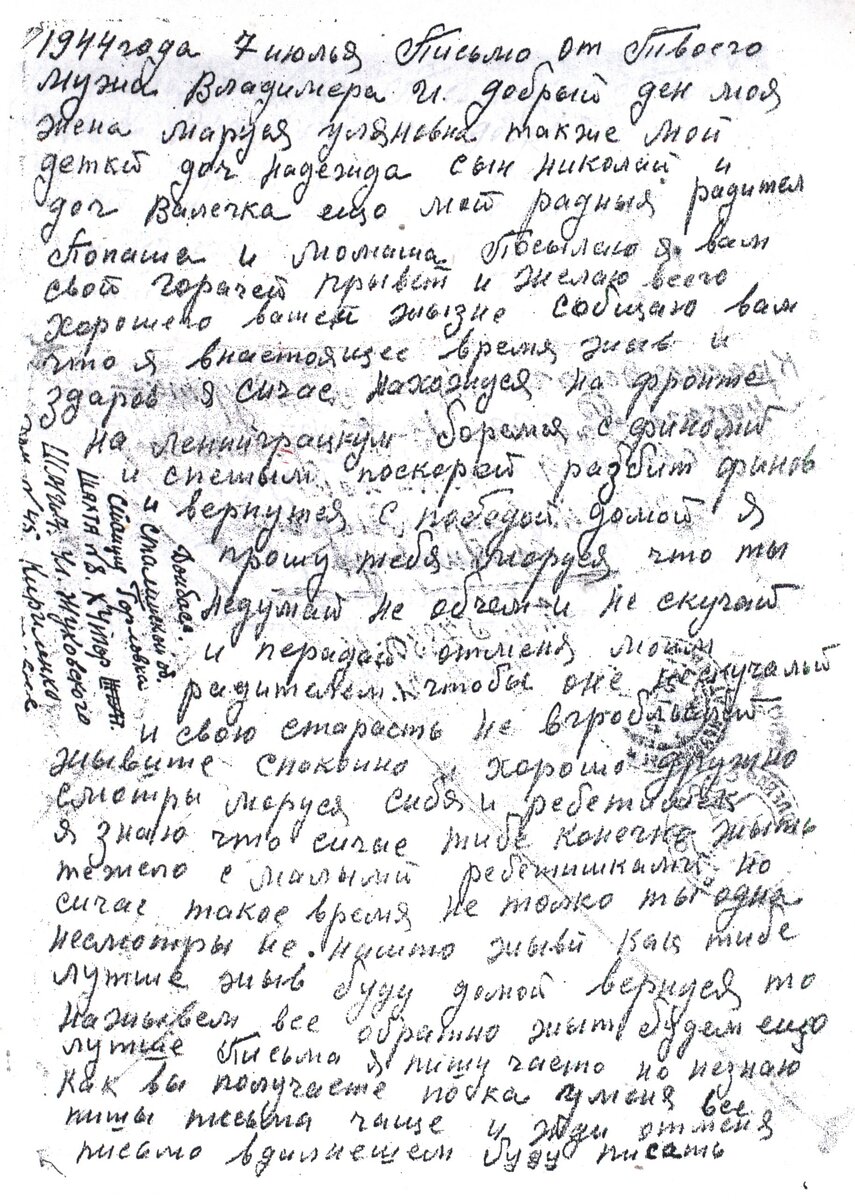 1944 года 7 июлья Письмо от Твоего
мужа Владимера И. добрый ден моя
жена Маруся уляновна также мой
деткй доч надежда сын николай и
доч Валечка ещо мой радныя радител
Попаша и момаша Посылаю я вам
свой горачей прывет и желаю всего
хорошего вашей жызне собщаю вам
что я внастоящее время жыв и
здаров я сичас нахожуся на фронте
на ленинграцкум боремся с финомй
и спешым поскорей разбит финов
вернутся с победой домой я
прошу тебя Моруся что ты
недумай не обчем и не скучай
и передай отменя моим
радителем чтобы оне нескучалый
и свою старасть не вгробльвалй
жывите спокойно, хорошо дружно
смотры моруся сибя и ребетишек
я знаю что сичас тибе конечно жыть
тежело с малымй ребетишкамй но
сичас такое время не толко ты одна
несмотры не нашто жывй как тибе
лутше жыв буду домой вернуся то
нажывем все обратно жыт будем ещо
лутше Письма я пишу часто но незнаю
как вы получаете покка уменя все
пишы письма чаще и жди отменя
письмо вдалнешем буду писать
Донбасс.
и сталинской об.
Станция Горловка
Шахта №8. Хутор
Шага. Ул. Жуковского
дом. №45. Кириленко